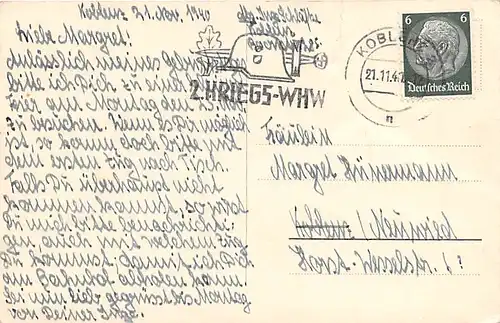 Koblenz, 21. Nov. 1940
Liebe Margret!
Anlässlich meines
bitte ich Dich zu einer
am Montag den
zu erscheinen. Wenn es Dir möglich
ist, so komm doch bitte mit
dem ersten Zug nach Tisch.
Falls Du überhaupt nicht
kommen kannst, so wirst
Du mich bitte benachrichti-
gen, auch mit welchem Zug
Du kommst, damit ich Dich
am Bahnhof abholen kann.
Sei nun lieb gegrüsst bis Montag
von Deiner Inge.
2. KRIEGS-WHW
KOBLENZ
21.11.4
n
6 6
Deutsches Reich
Fräulein
Margret Hünermann
Koblenz / Neuwied
Horst-Wesselstr.